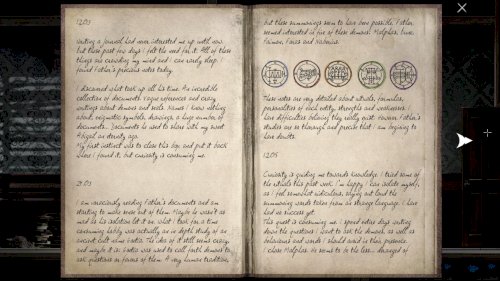 12.05
writing a journal had never interested me up until now,
but these past few days I felt the need for it. All of these
things are crowding my mind and I can barely sleep. I
found Father's precious notes today.
I discovered what took up all his time. An incredible
collection of documents, vague references and crazy
writings about demons and souls. Names I knew nothing
about, enigmatic symbols, drawings, a large number of
documents... Documents he used to share with my sweet
Abigail an eternity ago.
My first instinct was to close this box and put it back
where I found it, but curiosity is consuming me.
I am anxiously reading Father's documents and am
starting to make sense out of them. Maybe he wasn't as
mad as his isolation let it on. What I took for a time
consuming hobby was actually an in depth study of an
ancient cult among them. The idea of it still seems crazy,
and maybe it is. Rituals was used to call forth demons to
ask questions or favors of them. A very human tradition,
but these summonings seem to have been possible. Father
seemed interested in five of these demons. Malphas, Buer,
Raimor, Foras and Naberius.
These notes are very detailed about rituals, formulas,
personalities of each entity, strengths and weaknesses. I
have difficulties believing they really exist. However Father's
studies are so thorough and precise that I am beginning to
have doubts.
12.05
Curiosity is guiding me towards knowledge. I tried some of
the rituals this past week. I'm happy I can isolate myself,
as I feel somewhat ridiculous, crying out loud the
summoning words taken from an strange language. I have
had no success yet.
This quest is consuming me. I spend entire days writing
down the questions I want to ask the demons, as well as
behaviours and words I should avoid in their presence.
I chose Malphas. He seems to be the less... deranged of